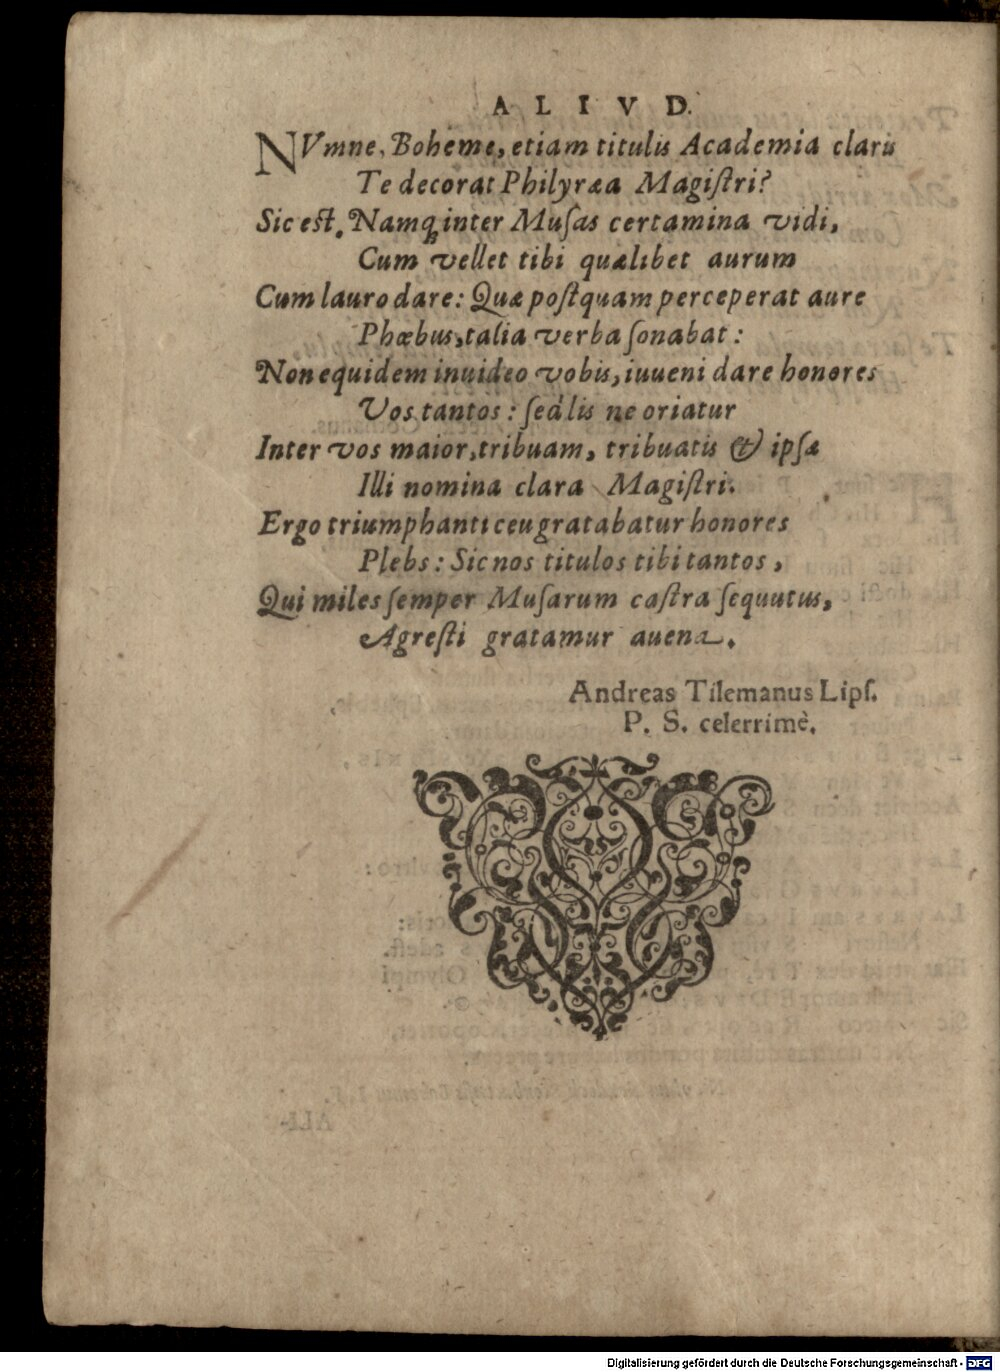 ALIVD.
NVmne, Boheme, etiam titulis Academia claris
Te decorat Philyræa Magiſtri?
Sic eſt. Namq; inter Muſas certamina vidi,
Cum vellet tibi quælibet aurum
Cum lauro dare: Quæ poſtquam perceperat aure
Phœbus, talia verba ſonabat:
Non equidem inuideo vobis, iuueni dare honores
Vos tantos: ſed lis ne oriatur
Inter vos maior, tribuam, tribuatis & ipſæ
Illi nomina clara Magiſtri.
Ergo triumphanti ceu gratabatur honores
Plebs: Sic nos titulos tibi tantos,
Qui miles ſemper Muſarum caſtra ſequutus,
Agreſti gratamur auena.
Andreas Tilemanus Lipſ.
P. S. celerrimè.
Digitalisierung gefördert durch die Deutsche Forschungsgemeinschaft - DFG